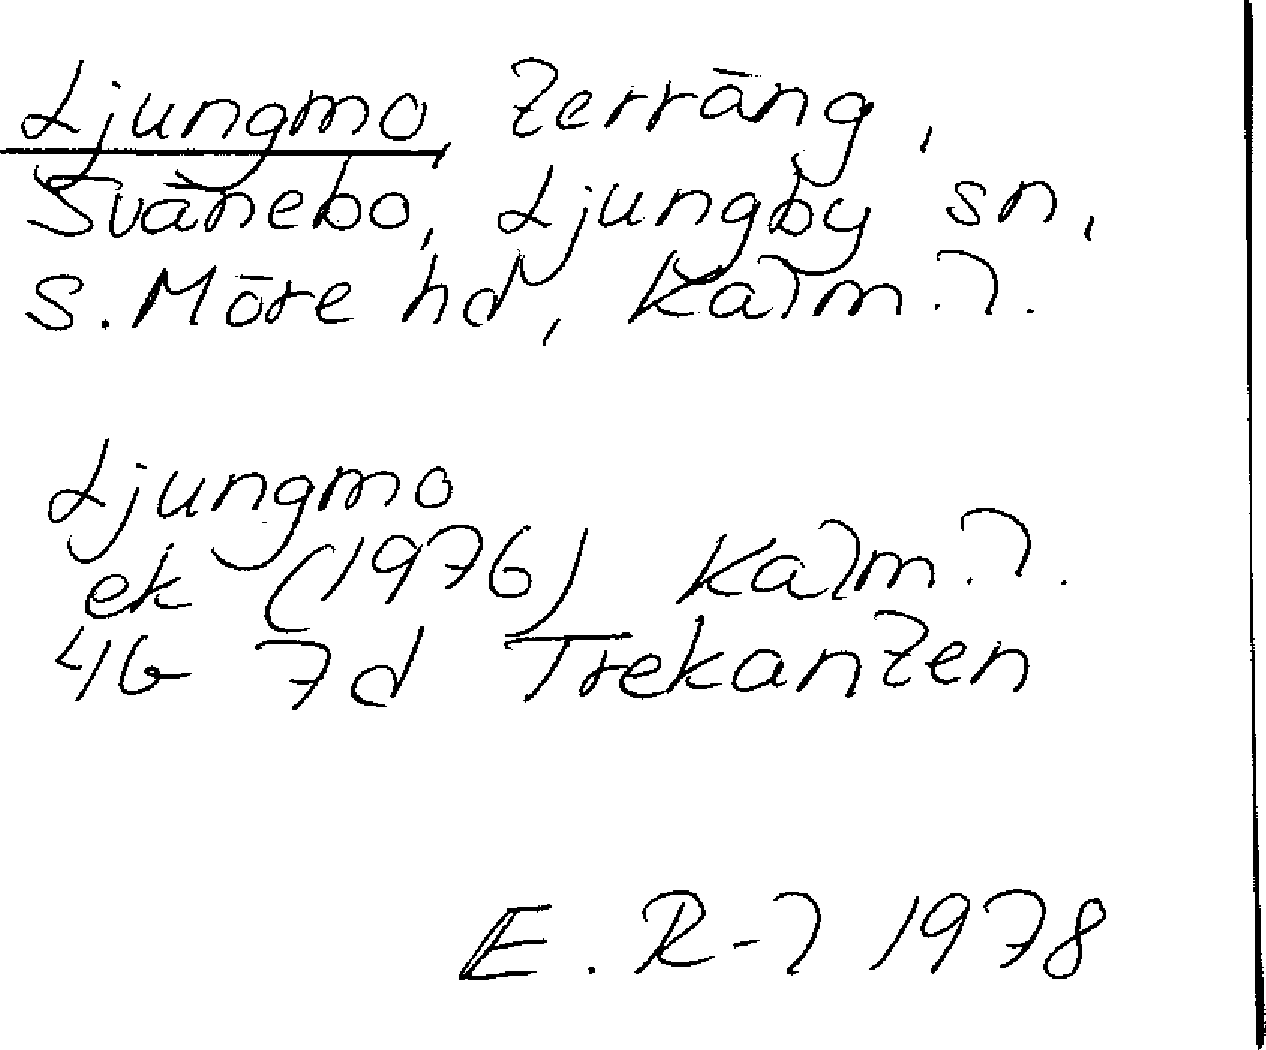 Ljungmo, terräng,
Svänebo, Ljungby sn,
S. Möre hd, Kalm. l.
Ljungmo
ek (1976) Kalm. l.
4G 7d Trekanten
E. R-l 1978